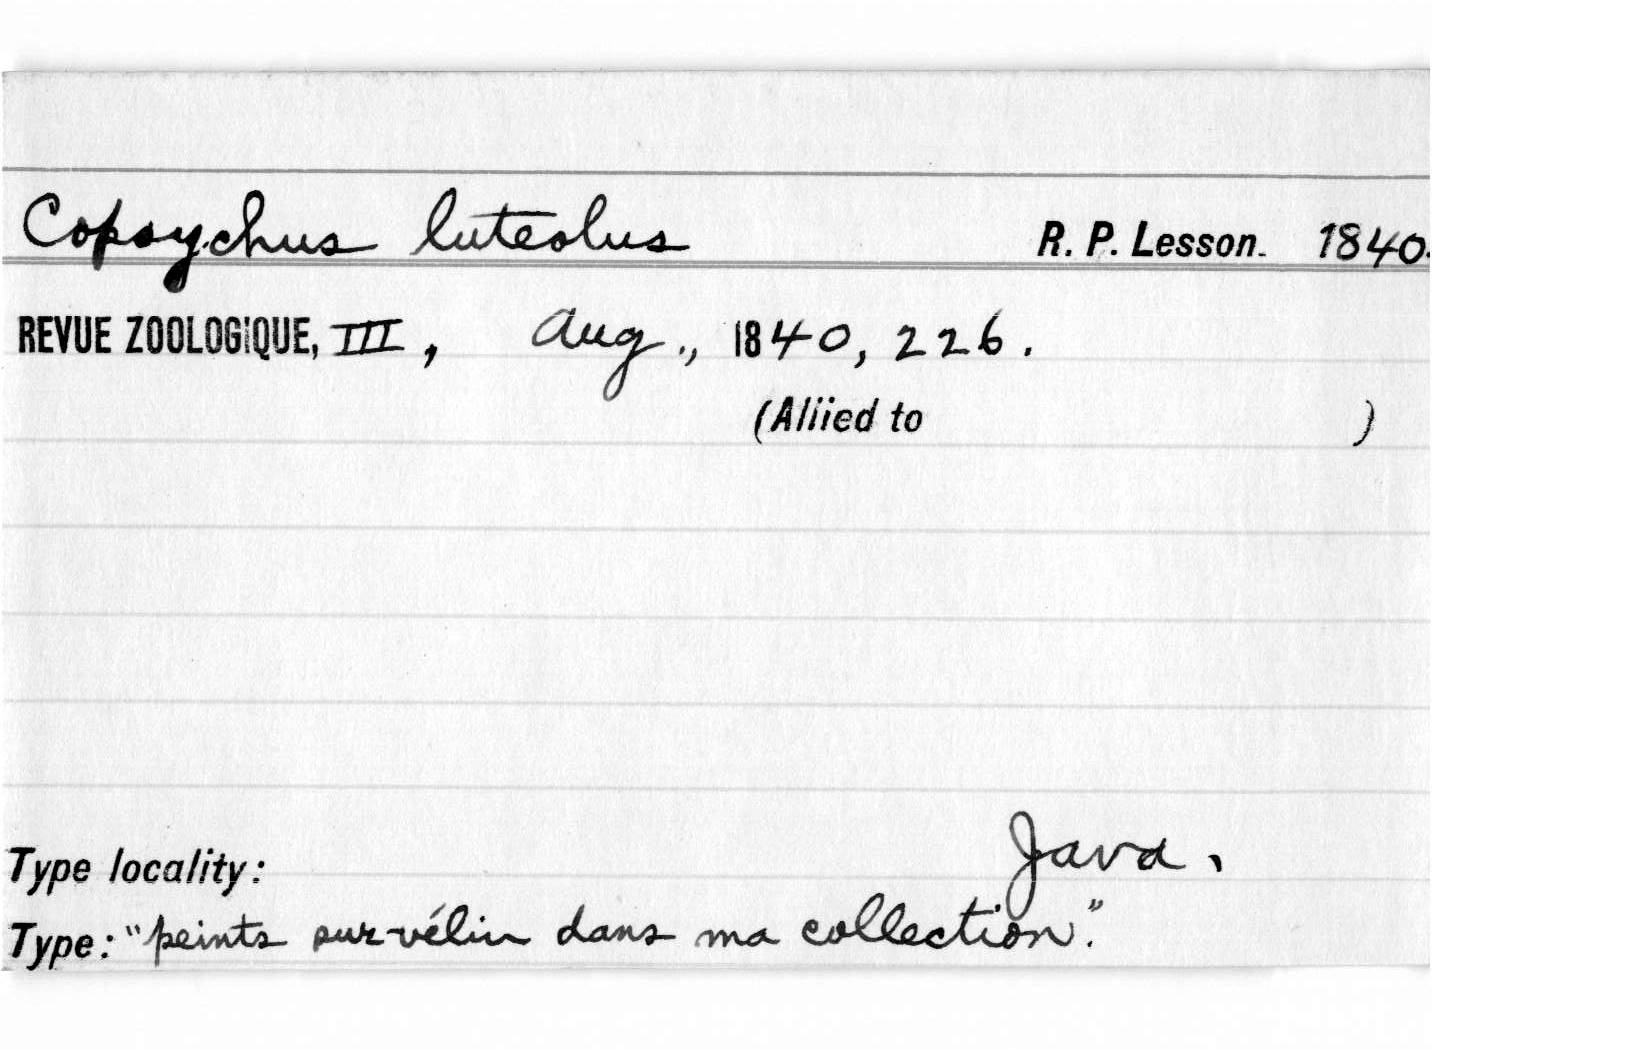 Copsychus luteolus R. P. Lesson. 1840.
REVUE ZOOLOGIQUE, III, Aug., 1840, 226.
(Allied to )
Type locality: Java.
Type: "peints sur vélin dans ma collection."